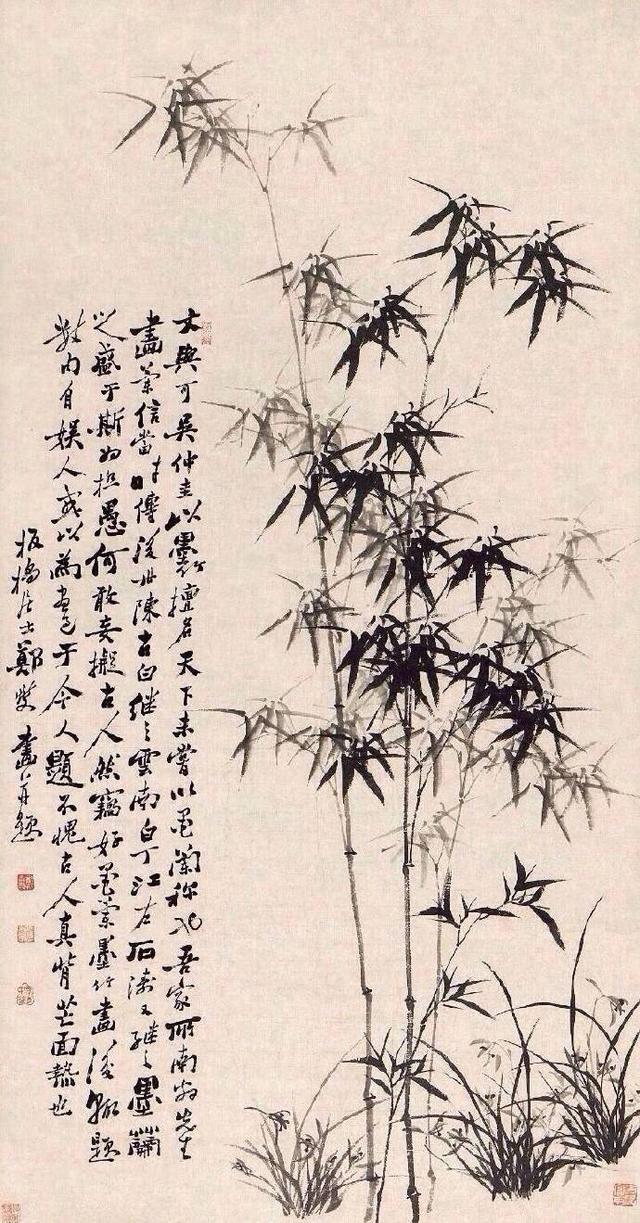 文與可吳仲圭以墨竹擅名天下未嘗以墨蘭称也吾家所南翁先生
畫蘭信當時傳後世陳古白繼之雲南白丁江左石濤又繼之墨蘭
之盛于斯為極愚何敢妄擬古人然竊好墨蘭墨竹畫後輒題
數自娛人或以為畫于今人題不愧古人真背芒面熱也
板橋居士鄭燮畫并題